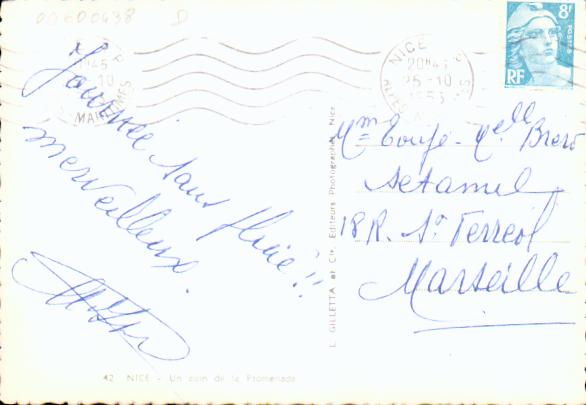 00600438 D
NICE R.P.
20H45
25-10
1953
ALPES MARITIMES
8F
POSTES
RF
Journée sans pluie!!
merveilleux.
Mme Coupé-Melle
18 R. St Ferreol
Marseille
L. GILLETTA et Cie, Editeurs Photographes, Nice
42 NICE - Un coin de la Promenade